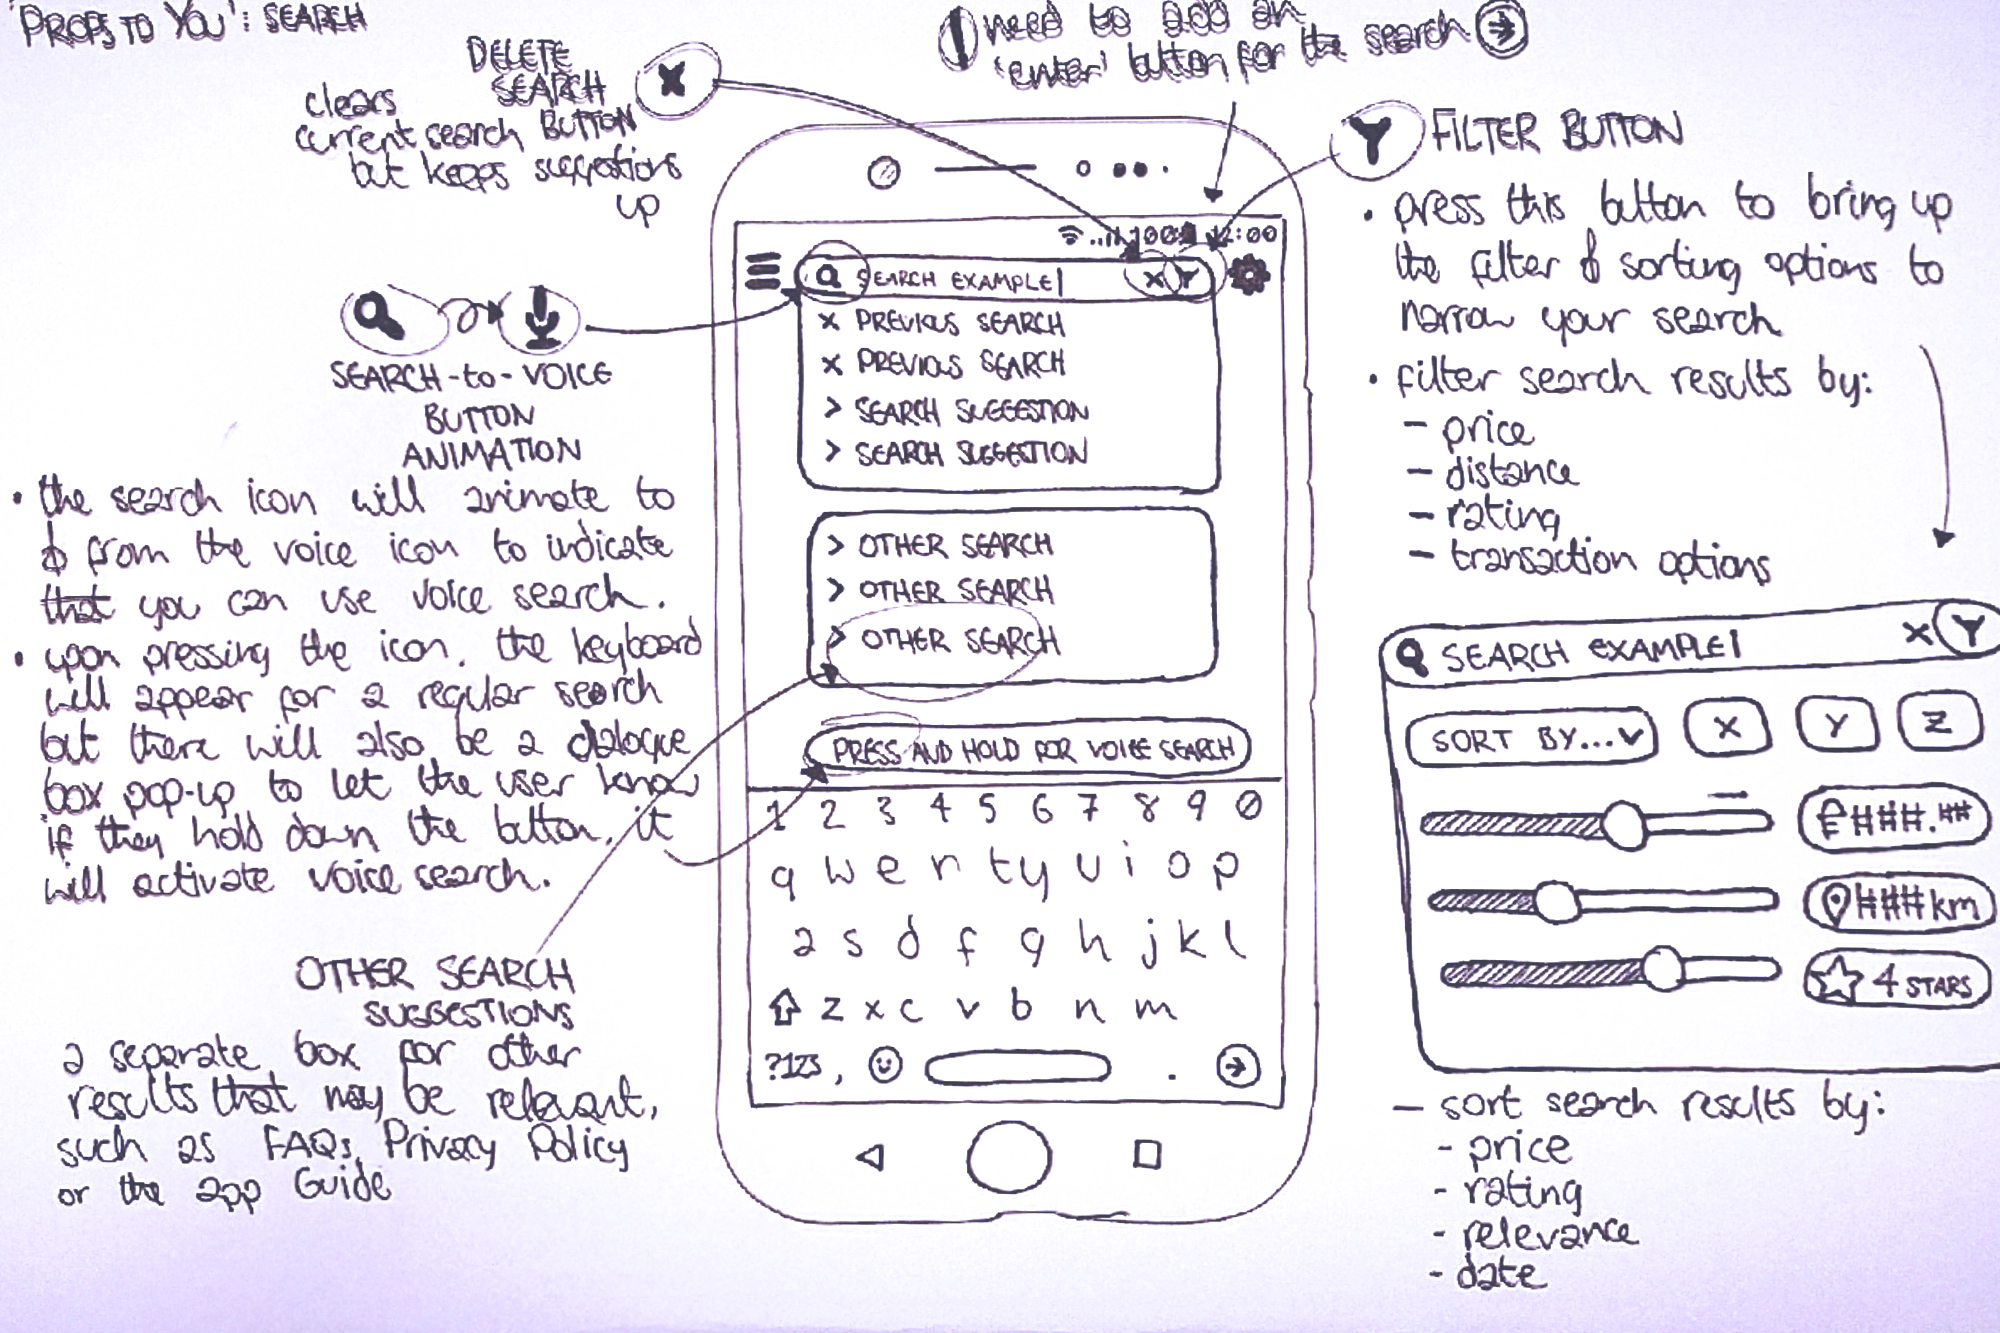 'PROPS TO YOU': SEARCH
DELETE
SEARCH
BUTTON
clears
current search
but keeps suggestions
up
! need to add an
'enter' button for the search
FILTER BUTTON
• press this button to bring up
the filter & sorting options to
narrow your search
• filter search results by:
- price
- distance
- rating
- transaction options
SEARCH-to-VOICE
BUTTON
ANIMATION
• the search icon will animate to
& from the voice icon to indicate
that you can use voice search.
• upon pressing the icon, the keyboard
will appear for a regular search
but there will also be a dialogue
box pop-up to let the user know
if they hold down the button, it
will activate voice search.
OTHER SEARCH
SUGGESTIONS
a separate box for other
results that may be relevant,
such as FAQs, Privacy Policy
or the app Guide
100 12:00
SEARCH EXAMPLE| X Y
x PREVIOUS SEARCH
x PREVIOUS SEARCH
> SEARCH SUGGESTION
> SEARCH SUGGESTION
> OTHER SEARCH
> OTHER SEARCH
> OTHER SEARCH
PRESS AND HOLD FOR VOICE SEARCH
1 2 3 4 5 6 7 8 9 0
q w e r t y u i o p
a s d f g h j k l
z x c v b n m
?123 , .
SEARCH EXAMPLE| X Y
SORT BY... X Y Z
£###.##
###km
4 STARS
- sort search results by:
- price
- rating
- relevance
- date